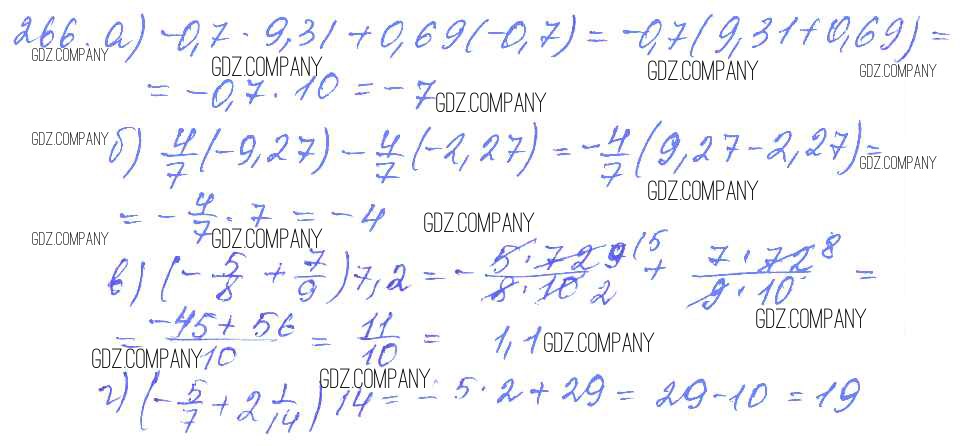 266. а) -0,7 · 9,31 + 0,69(-0,7) = -0,7(9,31 + 0,69) =
GDZ.COMPANY GDZ.COMPANY GDZ.COMPANY GDZ.COMPANY
= -0,7 · 10 = -7 GDZ.COMPANY
GDZ.COMPANY б) 4/7 (-9,27) - 4/7 (-2,27) = -4/7 (9,27 - 2,27) =
GDZ.COMPANY GDZ.COMPANY
= -4/7 · 7 = -4 GDZ.COMPANY
GDZ.COMPANY GDZ.COMPANY
в) (-5/8 + 7/9) 7,2 = - 5 · 72 9 / 8 · 10 2 + 7 · 72 8 / 9 · 10 =
GDZ.COMPANY
= -45 + 56 / 10 = 11/10 = 1,1 GDZ.COMPANY
GDZ.COMPANY GDZ.COMPANY
г) (-5/7 + 2 1/14) 14 = -5 · 2 + 29 = 29 - 10 = 19